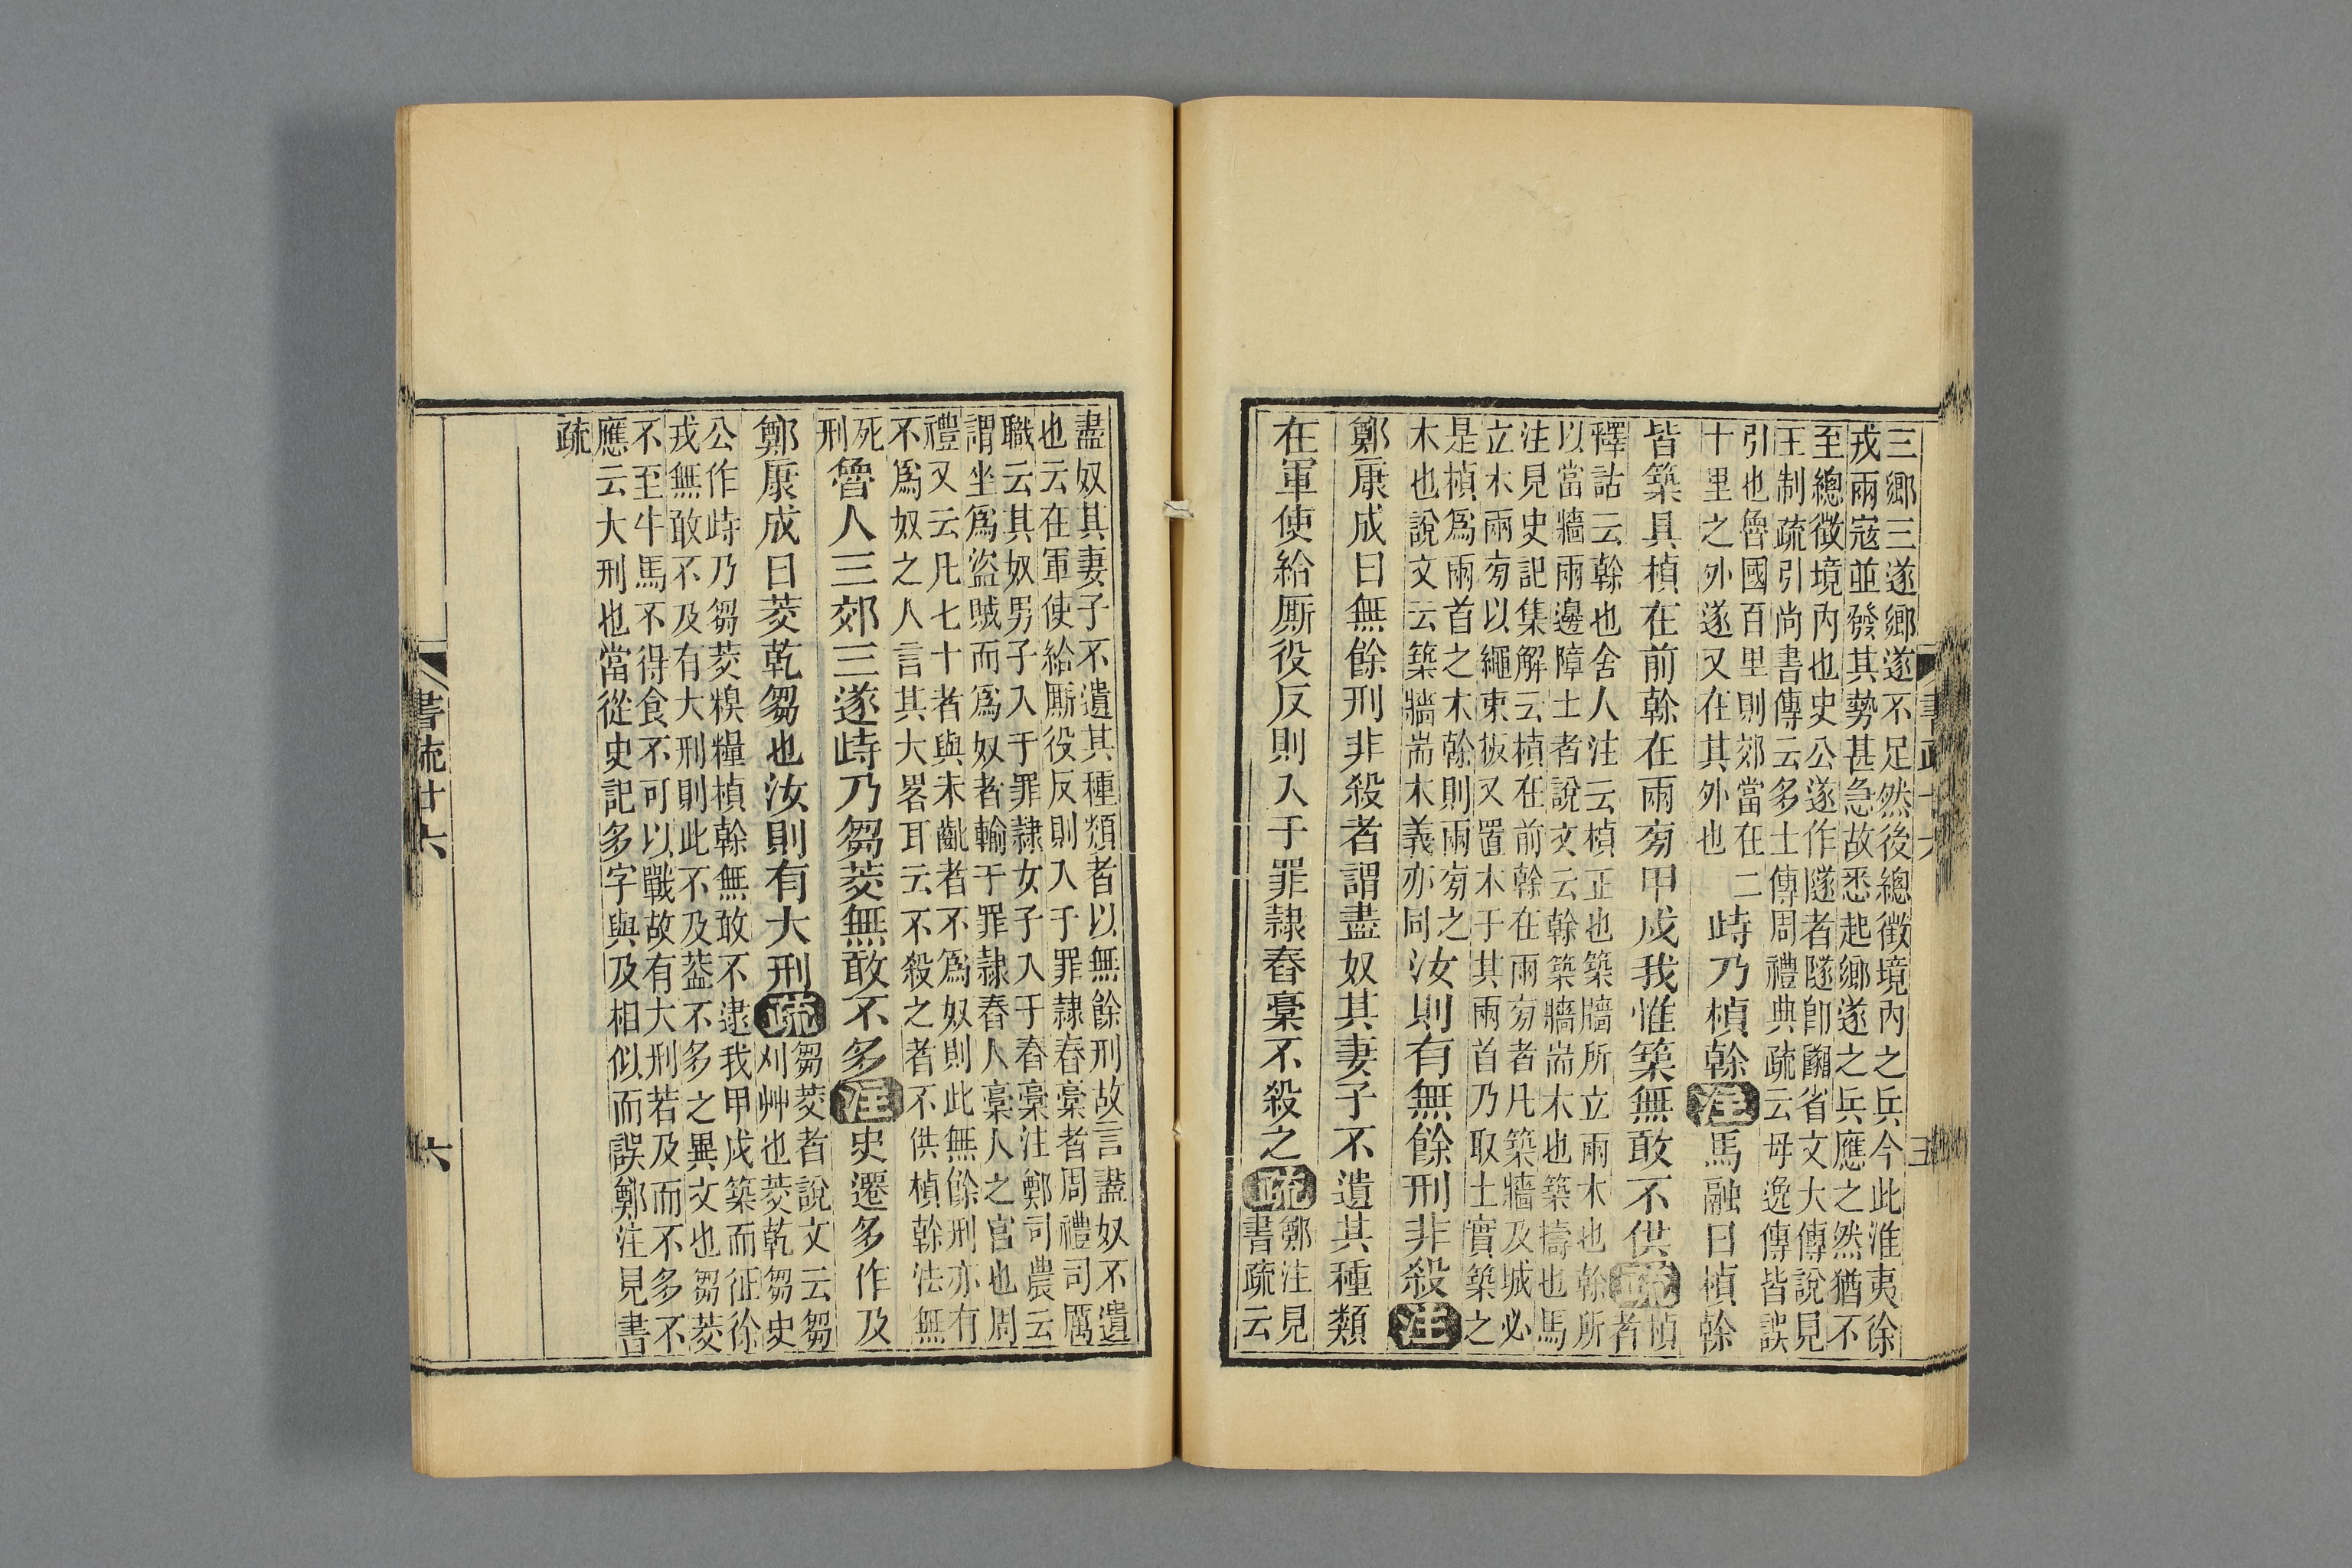 三鄉三遂鄉遂不足然後總徵境內之兵今此淮夷徐
戎兩寇並發其勢甚急故悉起鄉遂之兵應之然猶不
至總徵境內也史公遂作隧者隧卽䦽省文大傳說見
王制疏引尚書傳云多士傳周禮典疏云毋逸傳皆誤
引也魯國百里則郊當在二
十里之外遂又在其外也
峙乃楨榦注馬融曰楨榦
皆築具楨在前榦在兩旁甲戌我惟築無敢不供疏楨
者
釋詁云榦也舍人注云楨正也築牆所立兩木也榦所
以當牆兩邊障土者說文云榦築牆耑木也築擣也馬
注見史記集解云楨在前榦在兩旁者凡築牆及城必
立木兩旁以繩束板又置木于其兩首乃取土實築之
是楨爲兩首之木榦則兩旁之
木也說文云築牆耑木義亦同
汝則有無餘刑非殺注
鄭康成曰無餘刑非殺者謂盡奴其妻子不遺其種類
在軍使給厮役反則入于罪隷舂稾不殺之疏鄭注見
書疏云
盡奴其妻子不遺其種類者以無餘刑故言盡奴不遺
也云在軍使給厮役反則入于罪隷舂稾者周禮司厲
職云其奴男子入于罪隷女子入于舂稾注鄭司農云
謂坐爲盜賊而爲奴者輸于罪隷舂人稾人之官也周
禮又云凡七十者與未齔者不爲奴則此無餘刑亦有
不爲奴之人言其大畧耳云不殺之者不供楨榦法無
死
刑
魯人三郊三遂峙乃芻茭無敢不多注史遷多作及
鄭康成曰茭乾芻也汝則有大刑疏芻茭者說文云芻
刈艸也茭乾芻史
公作峙乃芻茭糗糧楨榦無敢不逮我甲戌築而征徐
戎無敢不及有大刑則此不及葢不多之異文也芻茭
不至牛馬不得食不可以戰故有大刑若及而不多不
應云大刑也當從史記多字與及相似而誤鄭注見書
疏
書疏廿六
六